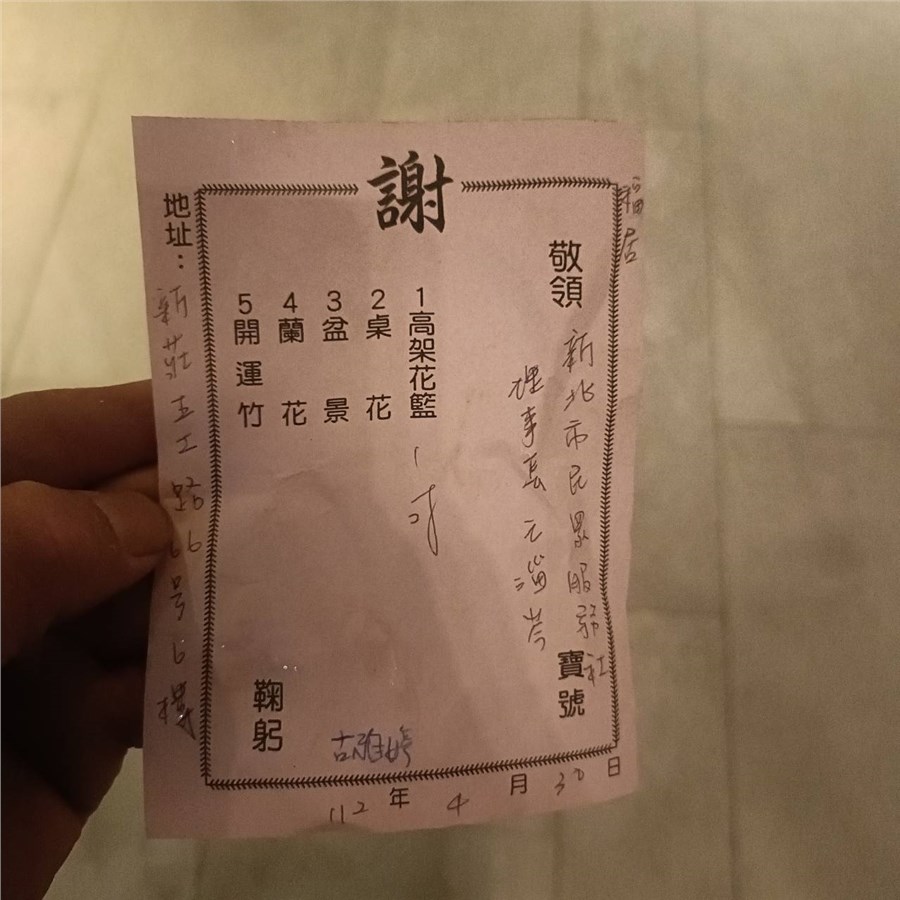 謝
福居
敬領
新北市民眾服務社
寶號
理事長 元淄岑
1高架花籃 1対
2桌花
3盆景
4蘭花
5開運竹
鞠躬
地址：新莊五工路66号6樓
112年4月30日